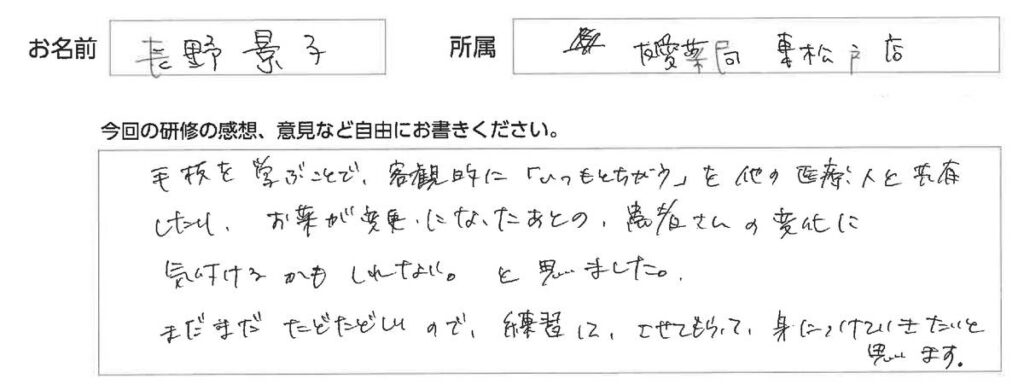 お名前 長野 景子
所属 友愛薬局 東松戸店
今回の研修の感想、意見など自由にお書きください。
手技を学ぶことで、客観的に「いつもとちがう」を他の医療人と共有
したり、お薬が変更になったあとの、患者さんの変化に
気付けるかもしれない。と思いました。
まだまだたどたどしいので、練習に、させてもらって、身につけていきたいと
思います。